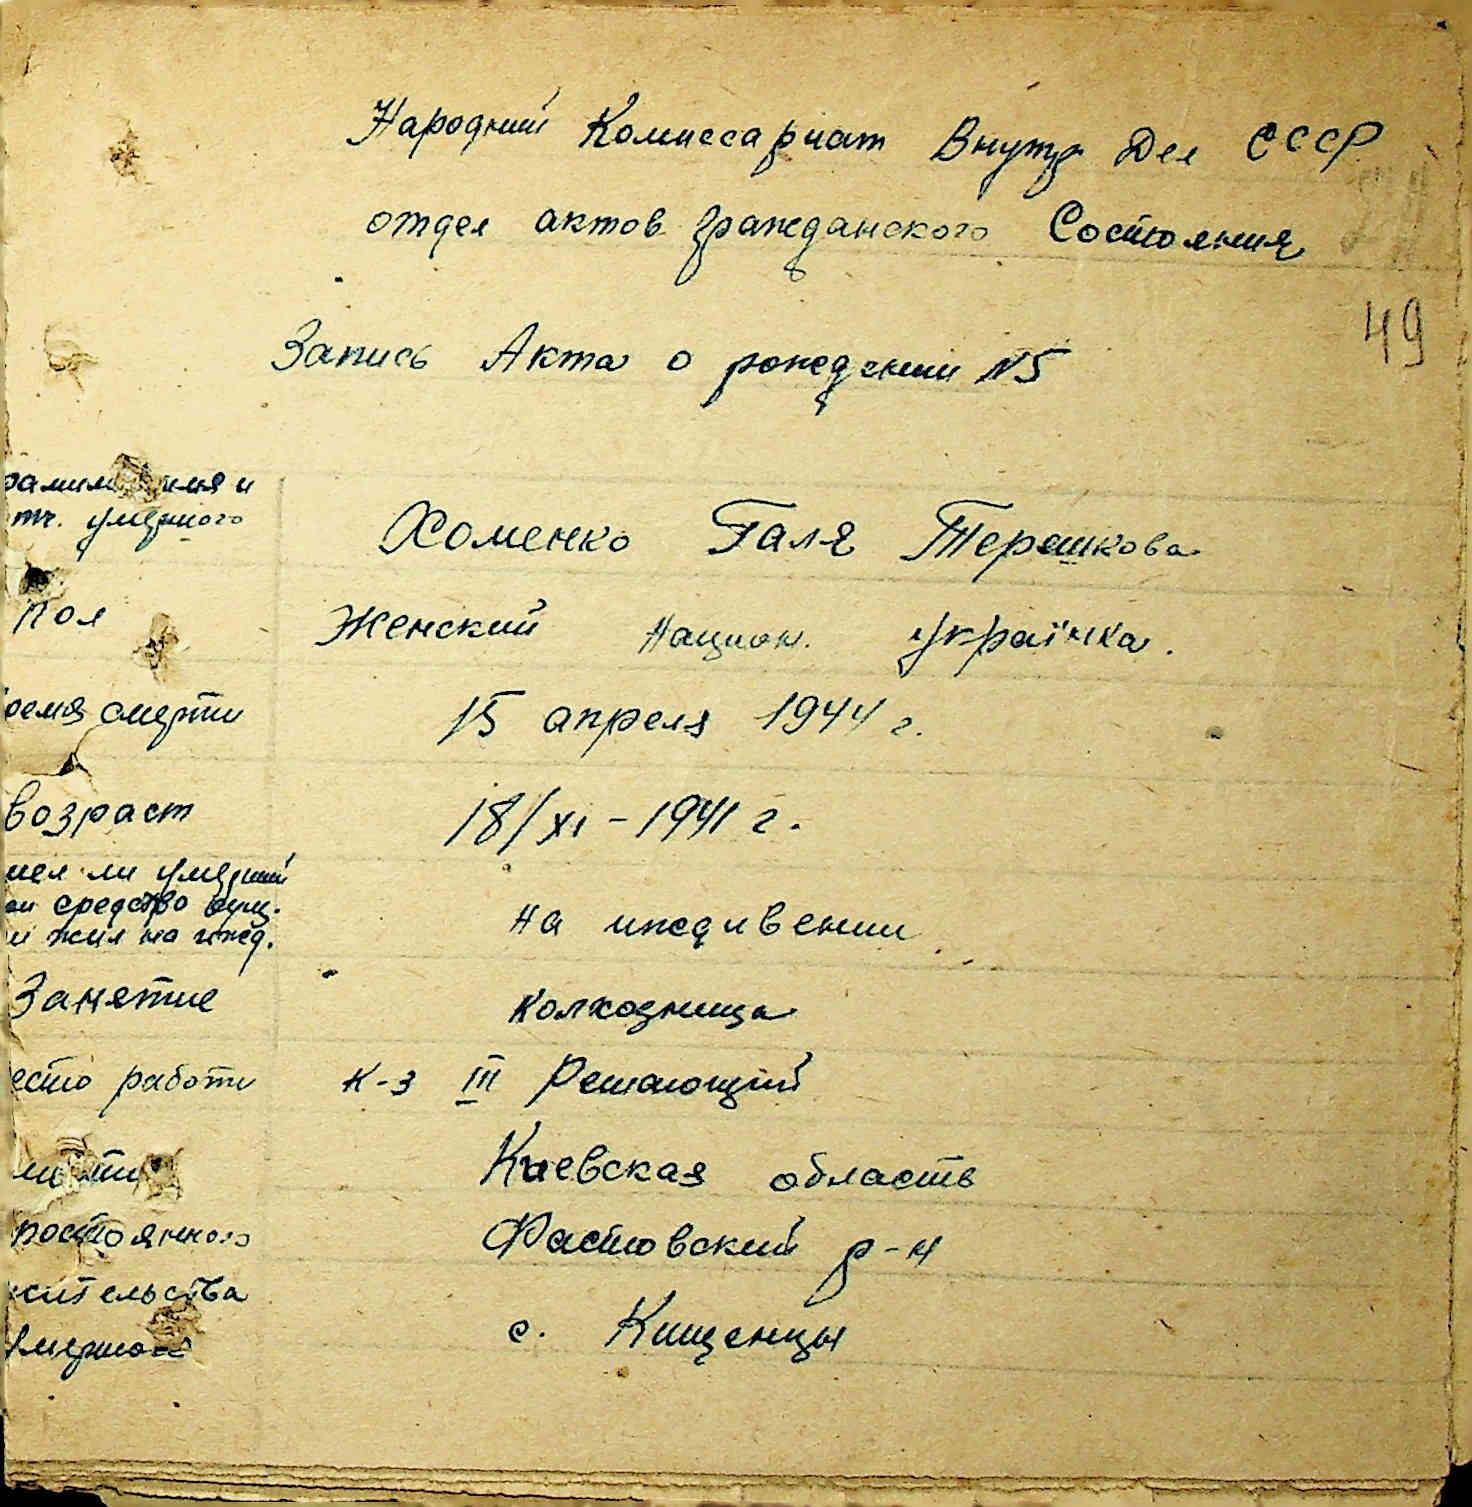 Народний Комиссариат Внутр Дел СССР
отдел актов гражданского Состояния
49
Запись Акта о рождении N5
фамил имя и
тч. умершого
Хоменко Галя Терешкова
пол
Женский Национ. українка.
ремя смерти
15 апреля 1944 г.
возраст
18/XI - 1941 г.
мел ли умерший
ои средство сущ.
и жил на ижд.
на иждивении
Занятие
колхозница
есто работи
к-з III Решающий
Киевская область
постоянного
Фастовский р-н
жительства
с. Кищенцы
умершого